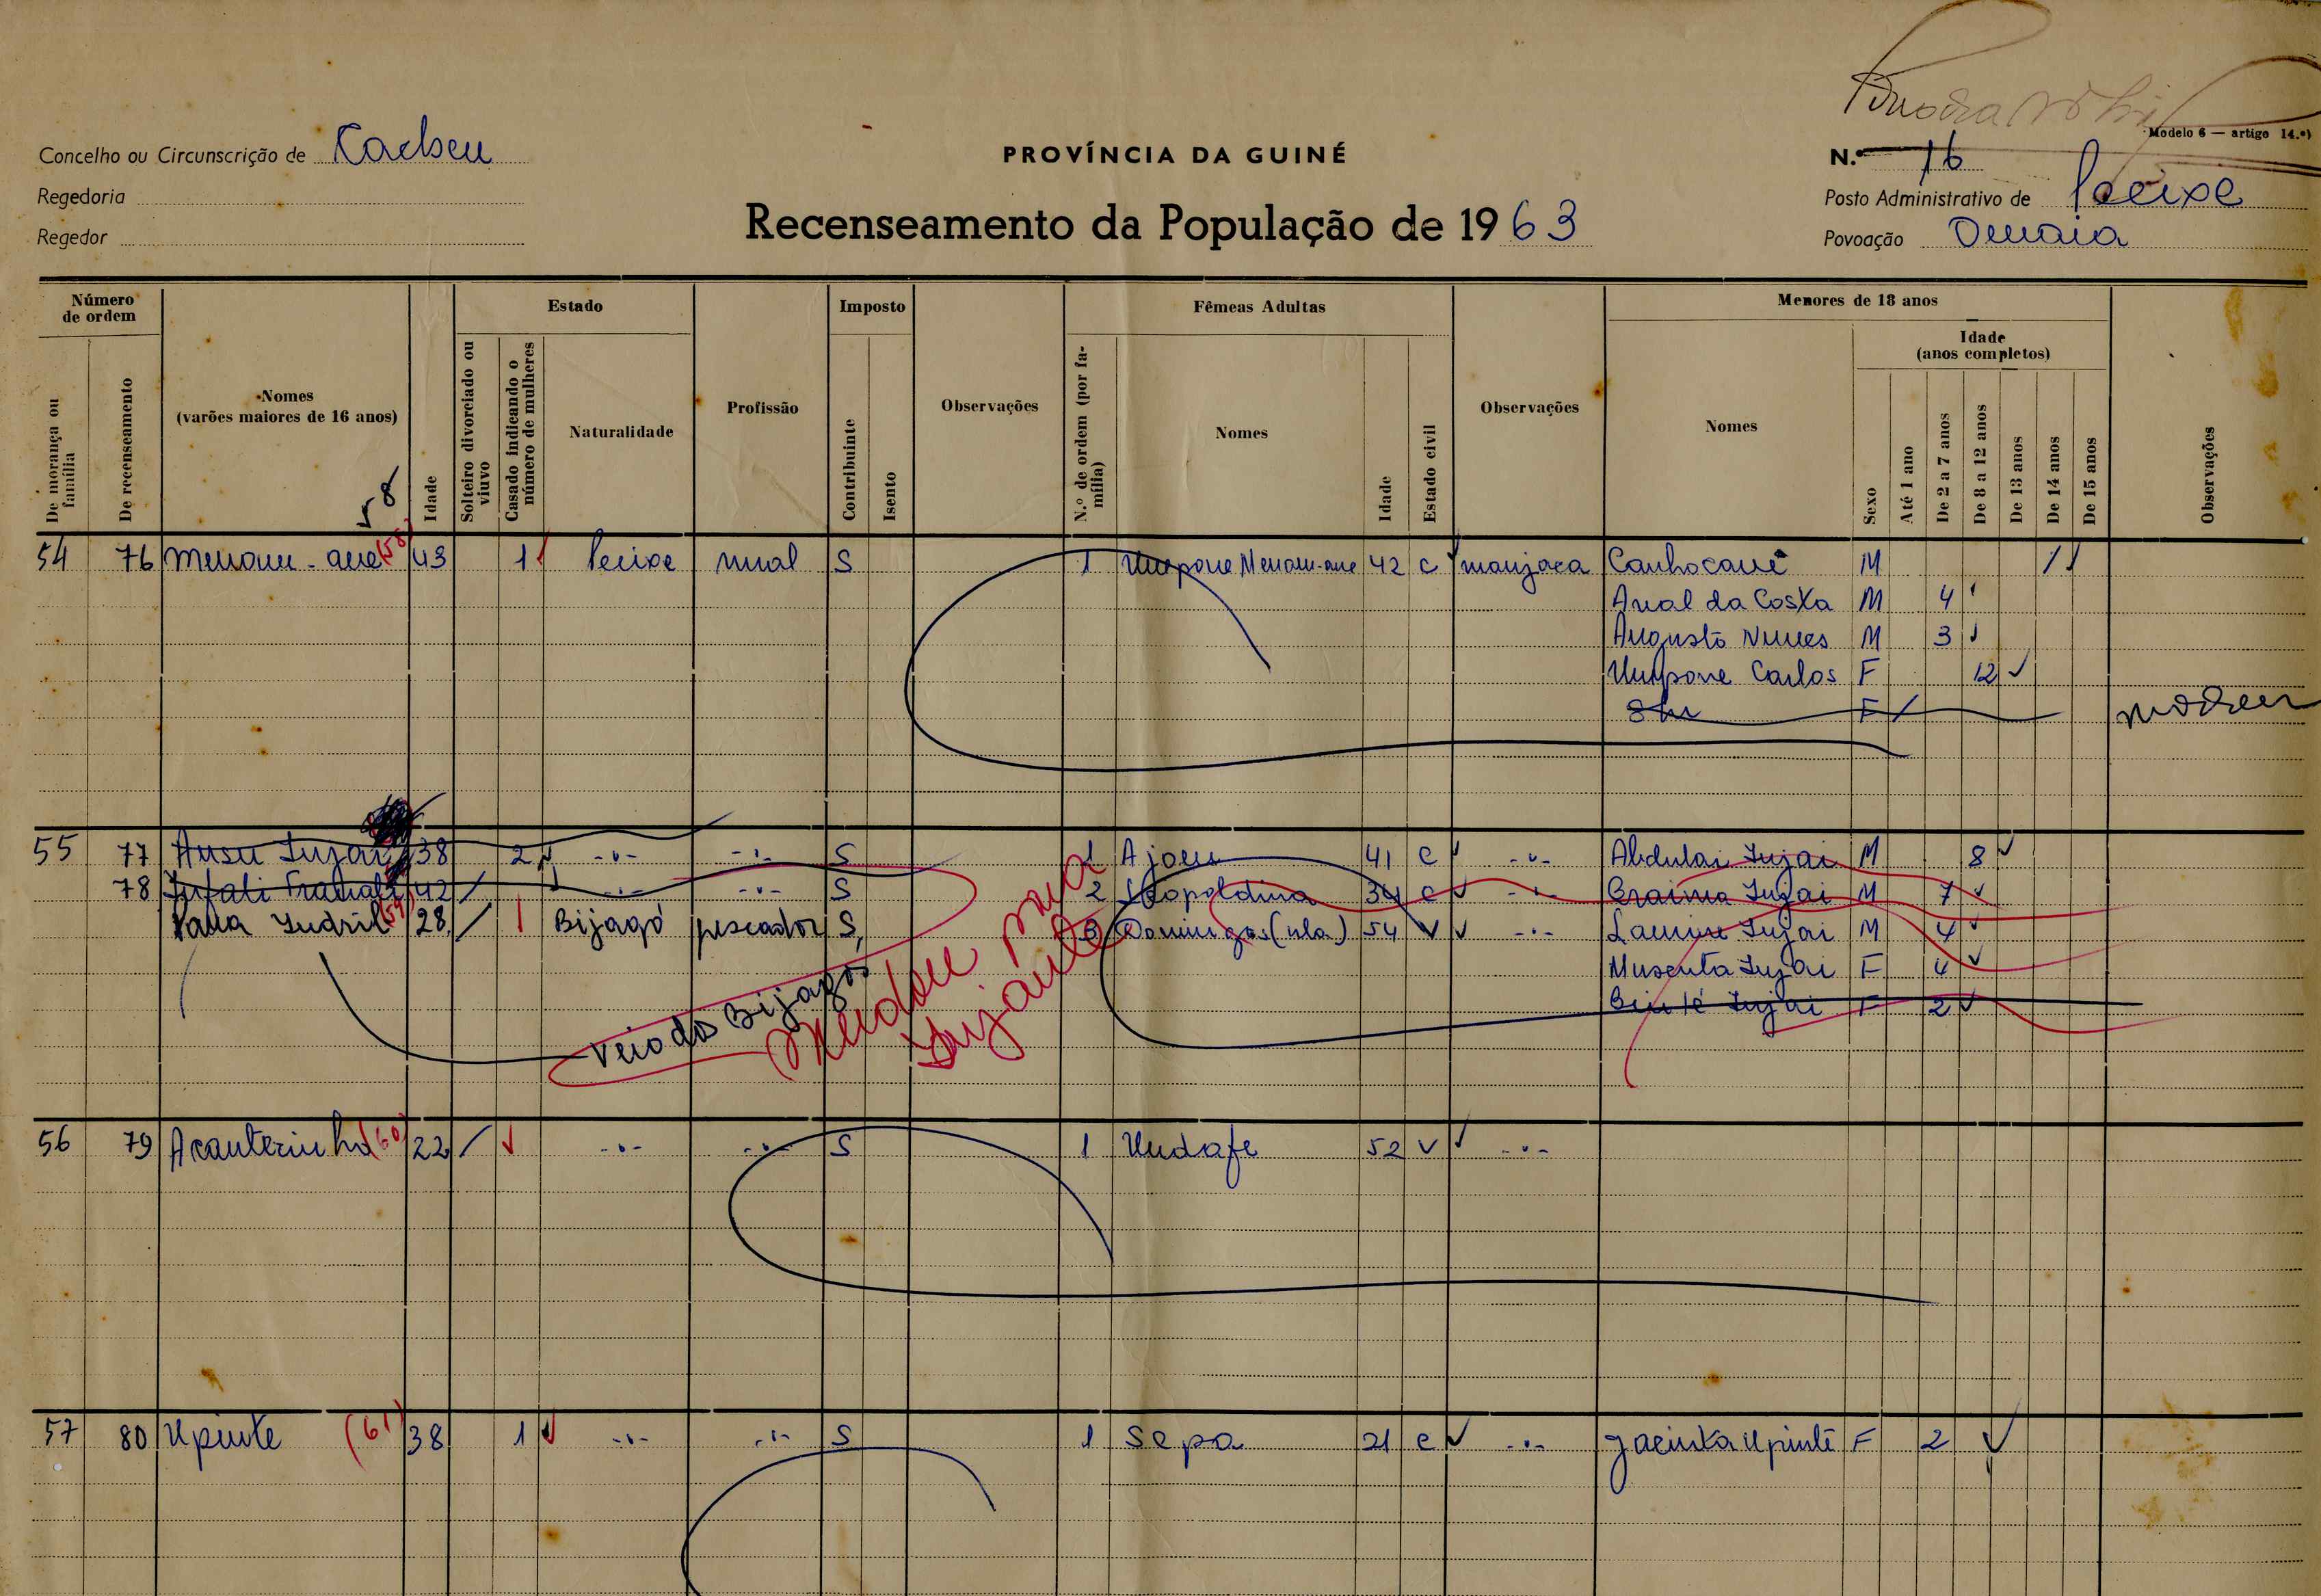 Modelo 6 — artigo 14.º)
Concelho ou Circunscrição de Cacheu
PROVÍNCIA DA GUINÉ
N.º 16
Regedoria
Posto Administrativo de Pecixe
Regedor
Recenseamento da População de 1963
Povoação
Número de ordem
De morança ou família
De recenseamento
Nomes
(varões maiores de 16 anos)
Idade
Estado
Solteiro divorciado ou viuvo
Casado indicando o número de mulheres
Naturalidade
Profissão
Imposto
Contribuinte
Isento
Observações
Fêmeas Adultas
N.º de ordem (por família)
Nomes
Idade
Estado civil
Observações
Menores de 18 anos
Nomes
Sexo
Idade
(anos completos)
Até 1 ano
De 2 a 7 anos
De 8 a 12 anos
De 13 anos
De 14 anos
De 15 anos
Observações
54 76 (58) 43 1 Pecixe rural S 1 42 C manjaca Canhocané M
Anal da Costa M 4
Augusto Nunes M 3
Carlos F 12
F
55 77 Ansu Injai 38 2 -"- -"- S 1 41 C -"- Abdulai Injai M 8
78 42 -"- -"- S 2 Leopoldina 34 C -"- Braima Injai M 7
(59) 28 Bijagó pescador S 3 Domingas 54 V -"- Lamine Injai M 4
Musenta Injai F 4
Binté Injai F 2
Veio dos Bijagós
Mudou para
56 79 Acanterinho (60) 22 -"- -"- S 1 Undafe 52 V -"-
57 80 Upinte (61) 38 1 -"- -"- S 1 Sepa 21 C -"- Jacinta Upinte F 2